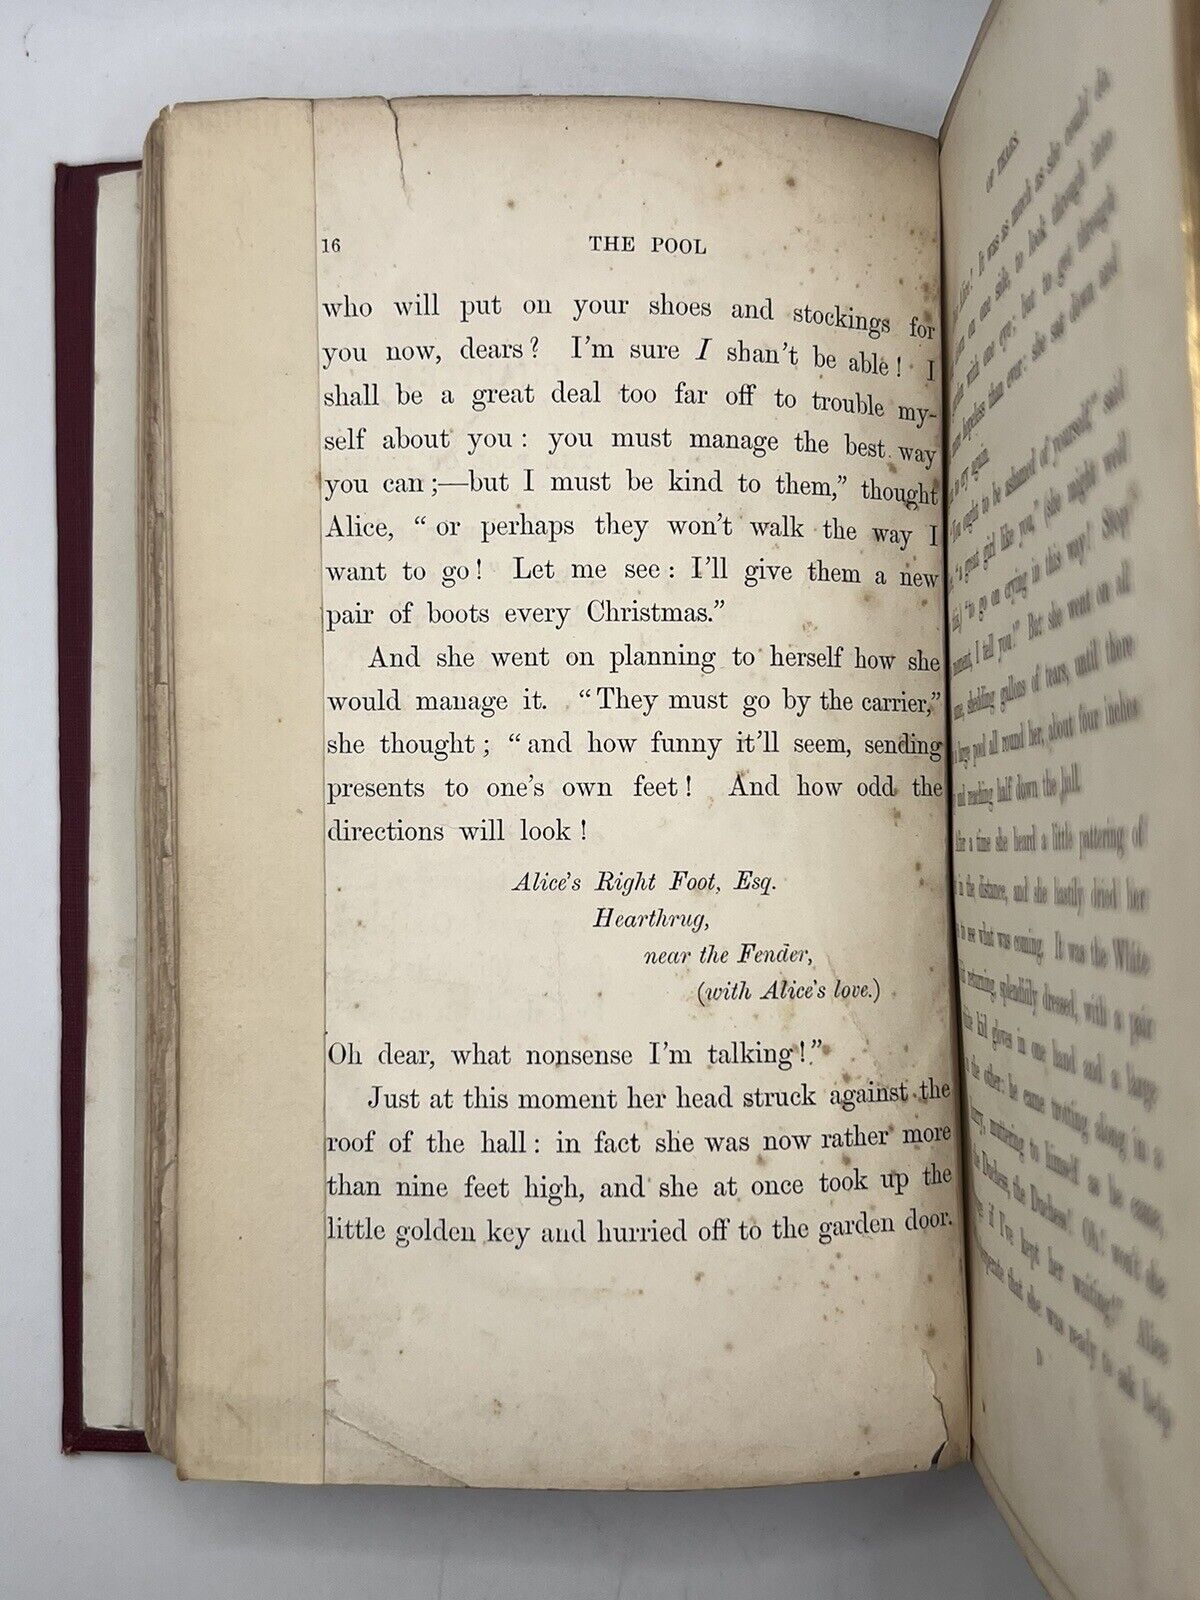 16 THE POOL
who will put on your shoes and stockings for
you now, dears? I'm sure I shan't be able! I
shall be a great deal too far off to trouble my-
self about you: you must manage the best way
you can;—but I must be kind to them," thought
Alice, "or perhaps they won't walk the way I
want to go! Let me see: I'll give them a new
pair of boots every Christmas."
And she went on planning to herself how she
would manage it. "They must go by the carrier,"
she thought; "and how funny it'll seem, sending
presents to one's own feet! And how odd the
directions will look!
Alice's Right Foot, Esq.
Hearthrug,
near the Fender,
(with Alice's love.)
Oh dear, what nonsense I'm talking!"
Just at this moment her head struck against the
roof of the hall: in fact she was now rather more
than nine feet high, and she at once took up the
little golden key and hurried off to the garden door.
OF TEARS
Alice! It was as much as she could do
down on one side, to look through into
garden with one eye; but to get through
more hopeless than ever: she sat down and
to cry again.
"You ought to be ashamed of yourself," said
"a great girl like you," (she might well
this,) "to go on crying in this way! Stop
moment, I tell you!" But she went on all
same, shedding gallons of tears, until there
a large pool all round her, about four inches
and reaching half down the hall.
After a time she heard a little pattering of
in the distance, and she hastily dried her
to see what was coming. It was the White
returning, splendidly dressed, with a pair
white kid gloves in one hand and a large
in the other: he came trotting along in a
hurry, muttering to himself as he came,
the Duchess, the Duchess! Oh! won't she
if I've kept her waiting!" Alice
desperate that she was ready to ask help
D